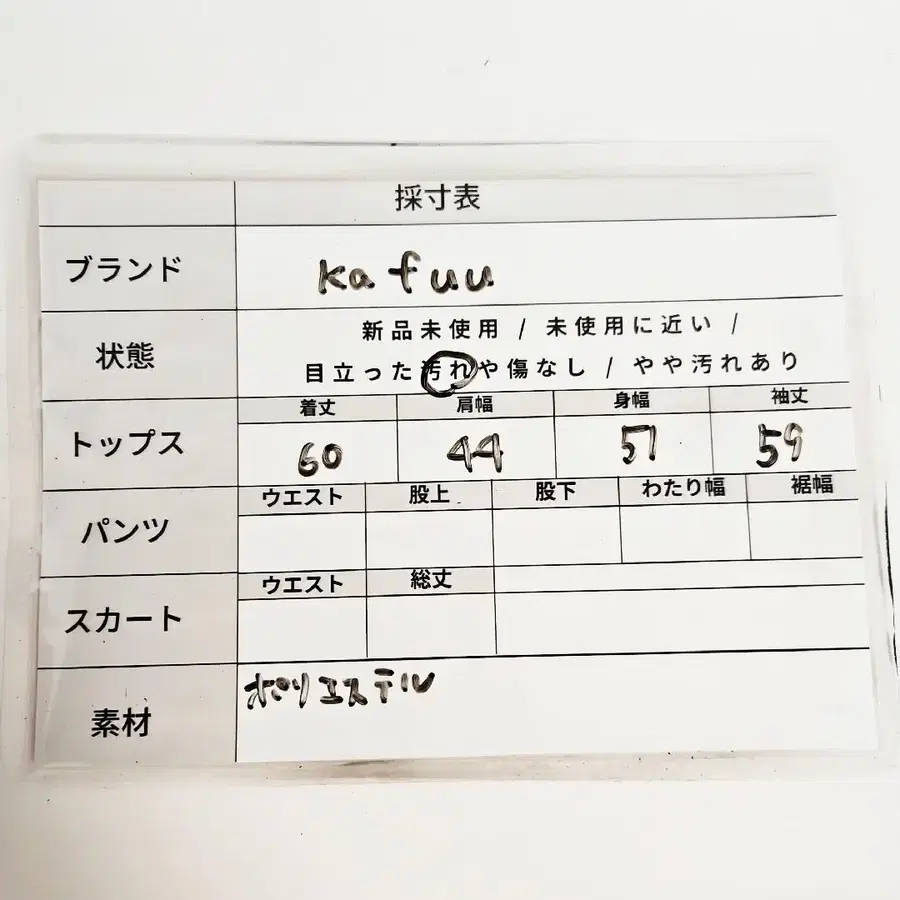 採寸表
ブランド kafuu
状態 新品未使用 / 未使用に近い /
目立った汚れや傷なし / やや汚れあり
トップス 着丈 肩幅 身幅 袖丈
60 44 51 59
パンツ ウエスト 股上 股下 わたり幅 裾幅
スカート ウエスト 総丈
素材 ポリエステル